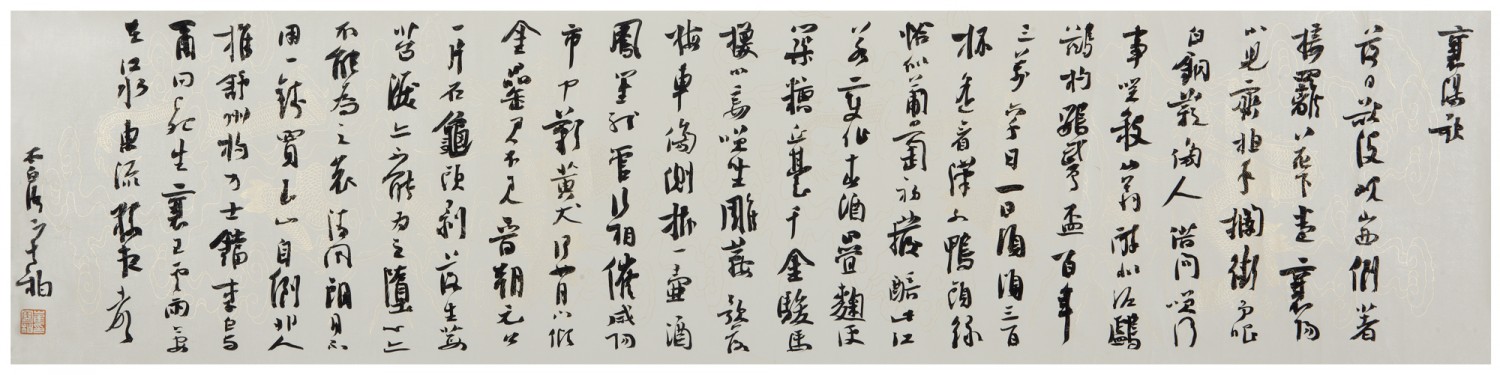 襄陽歌
落日欲沒峴山西倒著
接䍦花下迷襄陽
小兒齊拍手攔街爭唱
白銅鞮傍人借問笑何
事笑殺山翁醉似泥鸕
鶿杓鸚鵡盃百年
三萬六千日一日須傾三百
杯遙看漢水鴨頭綠
恰似葡萄初醱醅此江
若變作春酒壘麴便
築糟丘臺千金駿馬
換小妾笑坐雕鞍歌落
梅車傍側挂一壺酒
鳳笙龍管行相催咸陽
市中歎黃犬何如月下傾
金罍君不見晉朝羊公
一片石龜頭剝落生莓
苔淚亦不能為之墮心亦
不能為之哀清風朗月不
用一錢買玉山自倒非人
推舒州杓力士鐺李白與
爾同死生襄王雲雨今安
在江水東流猿夜聲